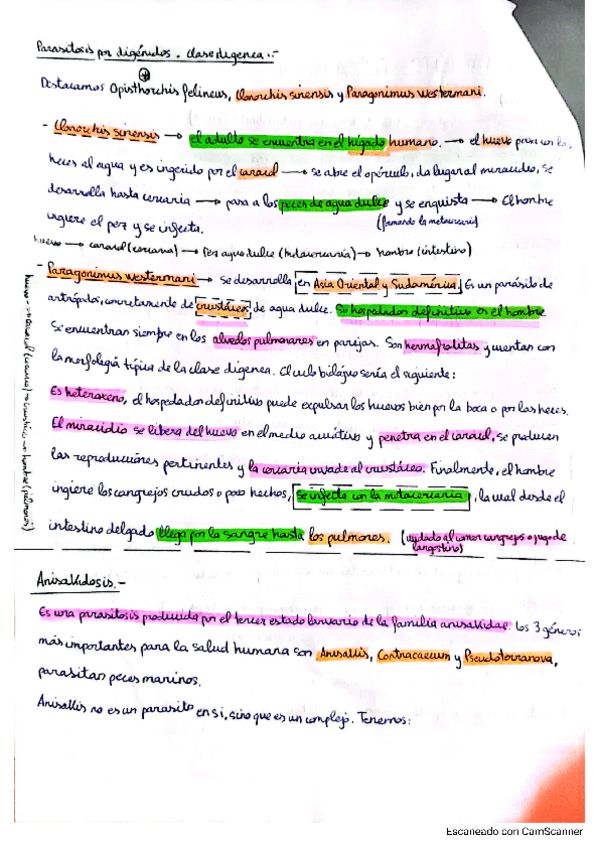 Parasitosis por digénidos. Clase digenea:-
Destacamos Opisthorchis felineus, Clonorchis sinensis y Paragonimus westermani.
- Clonorchis sinensis → el adulto se encuentra en el hígado humano. → el huevo pasa con las
heces al agua y es ingerido por el caracol → se abre el opérculo, da lugar al miracidio, se
desarrolla hasta cercaria → pasa a los peces de agua dulce y se enquista → El hombre
(formando la metacercaria)
ingiere el pez y se infecta.
huevo → caracol (cercaria) → Pez agua dulce (metacercaria) → hombre (intestino)
- Paragonimus westermani → se desarrolla en Asia Oriental y Sudamérica. Es un parásito de
artrópodos, concretamente de crustáceos, de agua dulce. Su hospedador definitivo es el hombre
Se encuentran siempre en los alveolos pulmonares en parejas. Son hermafroditas y cuentan con
la morfología típica de la clase digenea. El ciclo biológico sería el siguiente:
Es heteroxeno, el hospedador definitivo puede expulsar los huevos bien por la boca o por las heces.
El miracidio se libera del huevo en el medio acuático y penetra en el caracol, se producen
las reproducciones pertinentes y la cercaria invade al crustáceo. Finalmente, el hombre
ingiere los cangrejos crudos o poco hechos, se infecta con la metacercaria, la cual desde el
intestino delgado llega por la sangre hasta los pulmones. (cuidado al comer cangrejos o jugo de
langostino)
huevo → caracol (cercaria) → crustáceo → hombre (pulmones)
Anisakidosis.-
Es una parasitosis producida por el tercer estado larvario de la familia anisakidae. Los 3 géneros
más importantes para la salud humana son Anisakis, Contracaecum y Pseudoterranova,
parasitan peces marinos.
Anisakis no es un parásito en sí, sino que es un complejo. Tenemos:
Escaneado con CamScanner